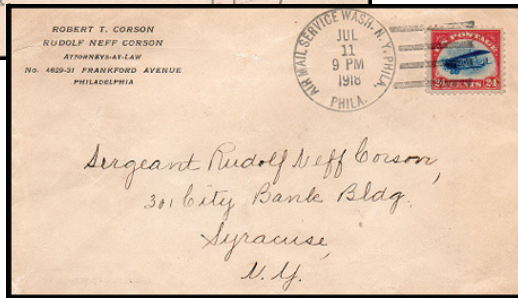 ROBERT T. CORSON
RUDOLF NEFF CORSON
ATTORNEYS-AT-LAW
No. 4829-31 FRANKFORD AVENUE
PHILADELPHIA
AIR MAIL SERVICE WASH. N.Y. PHILA.
JUL
11
9 PM
1918
PHILA.
U.S. POSTAGE
24 CENTS 24
Sergeant Rudolf Neff Corson,
301 City Bank Bldg.
Syracuse,
N.Y.